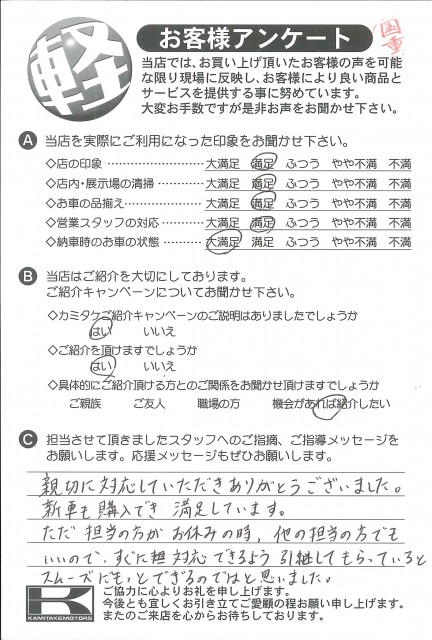 軽
お客様アンケート
国重
当店では、お買い上げ頂いたお客様の声を可能
な限り現場に反映し、お客様により良い商品と
サービスを提供する事に努めています。
大変お手数ですが是非お声をお聞かせ下さい。
A 当店を実際にご利用になった印象をお聞かせ下さい。
◇店の印象 ……………… 大満足 満足 ふつう やや不満 不満
◇店内・展示場の清掃 ……… 大満足 満足 ふつう やや不満 不満
◇お車の品揃え …………… 大満足 満足 ふつう やや不満 不満
◇営業スタッフの対応 ……… 大満足 満足 ふつう やや不満 不満
◇納車時のお車の状態 ……… 大満足 満足 ふつう やや不満 不満
B 当店はご紹介を大切にしております。
ご紹介キャンペーンについてお聞かせ下さい。
◇カミタケご紹介キャンペーンのご説明はありましたでしょうか
はい いいえ
◇ご紹介を頂けますでしょうか
はい いいえ
◇具体的にご紹介頂ける方とのご関係をお聞かせ頂けますでしょうか
ご親族 ご友人 職場の方 機会があれば紹介したい
C 担当させて頂きましたスタッフへのご指摘、ご指導メッセージを
お願いします。応援メッセージもぜひお願いします。
親切に対応していただきありがとうございました。
新車も購入でき 満足しています。
ただ 担当の方が お休みの時、他の担当の方でも
いいので、すぐに 対応できるよう 引継してもらっていると
スムーズにもっとできるのではと思いました。
K
KAMITAKEMOTORS
ご協力に心よりお礼を申し上げます。
今後とも宜しくお引き立てご愛顧の程お願い申し上げます。
またのご来店を心からお待ちしております。